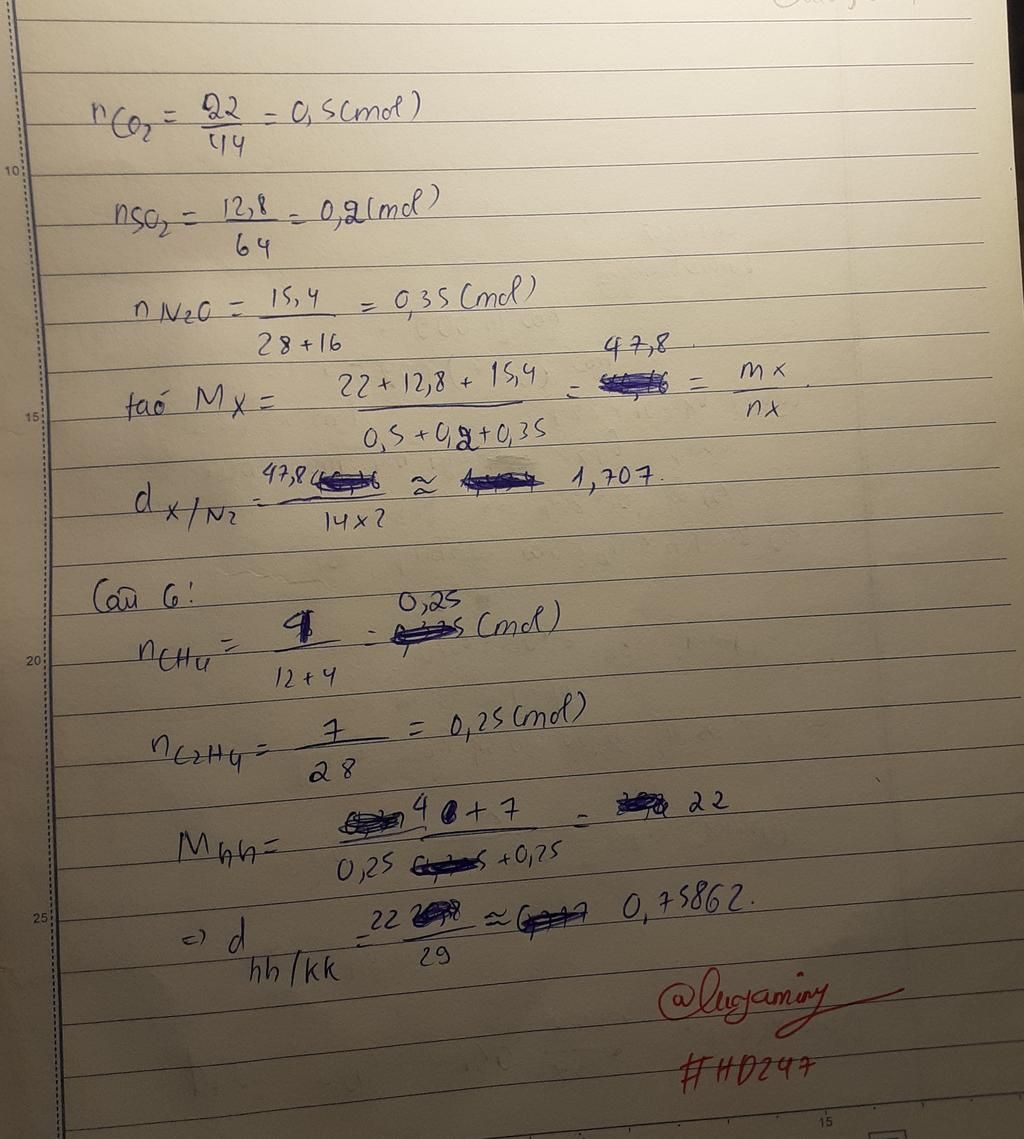 nCO2 = 22/44 = 0,5(mol)
10
nSO2 = 12,8/64 = 0,2(mol)
nN2O = 15,4/28+16 = 0,35(mol)
47,8
MX = 22+12,8+15,4/0,5+0,2+0,35 = = mX/nX
15
dX/N2 = 47,8/14x2 ≈ 1,707.
Câu 6:
0,25
nCH4 = 4/12+4 = (mol)
20
nC2H4 = 7/28 = 0,25(mol)
Mhh = 4+7/0,25+0,25 = 22
25
=> d hh/kk = 22/29 ≈ 0,75862.
@lucgaming
#HD247
15